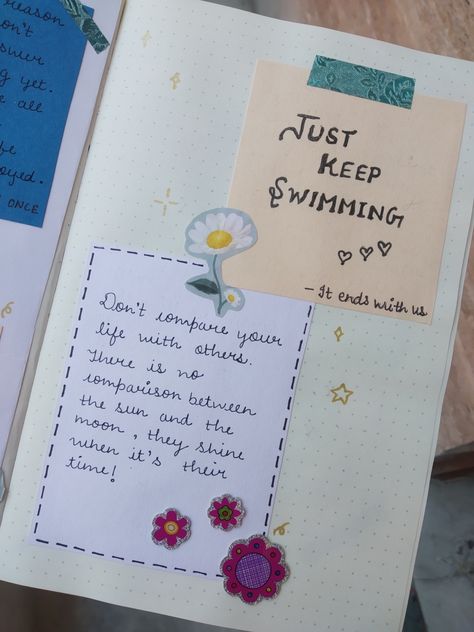 reason
don't
yet.
all
ONCE
JUST
KEEP
SWIMMING
- It ends with us
Don't compare your
life with others.
There is no
comparison between
the sun and the
moon, they shine
when it's their
time!